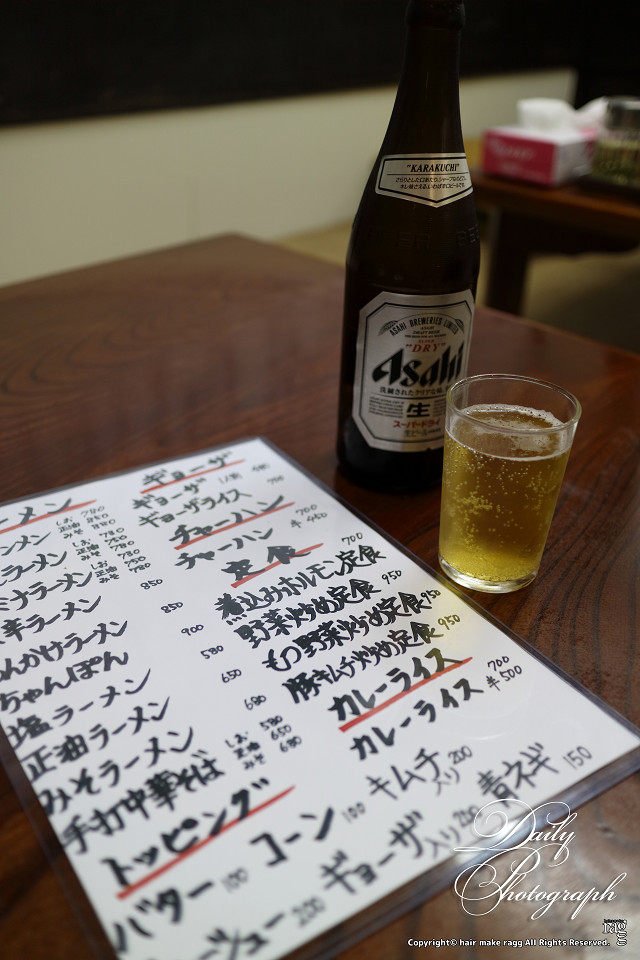 "KARAKUCHI"
ASAHI BREWERIES LIMITED
ASAHI
DRAFT BEER
SUPER
"DRY"
Asahi
洗練されたクリアな味
生
スーパードライ
生ビール
ギョーザ
ギョーザ
ギョーザライス
チャーハン
チャーハン 700 半 450
定食
煮込みホルモン定食 700
野菜炒め定食 950
もつ野菜炒め定食 950
豚キムチ炒め定食 950
カレーライス
カレーライス 700 半500
ーメン
しお 780
正油 850
みそ 880
ラーメン
しお 780
正油 750
みそ 780
ミナラーメン
辛ラーメン 850
んかけラーメン 850
ちゃんぽん 900
塩ラーメン 580
正油ラーメン 650
みそラーメン 680
手打中華そば しお 580 正油 650 みそ 680
トッピング
バター 100
コーン 100
キムチ入り 200
ギョーザ入り 200
青ネギ 150
200
Daily
Photograph
Copyright© hair make ragg All Rights Reserved.
ragg